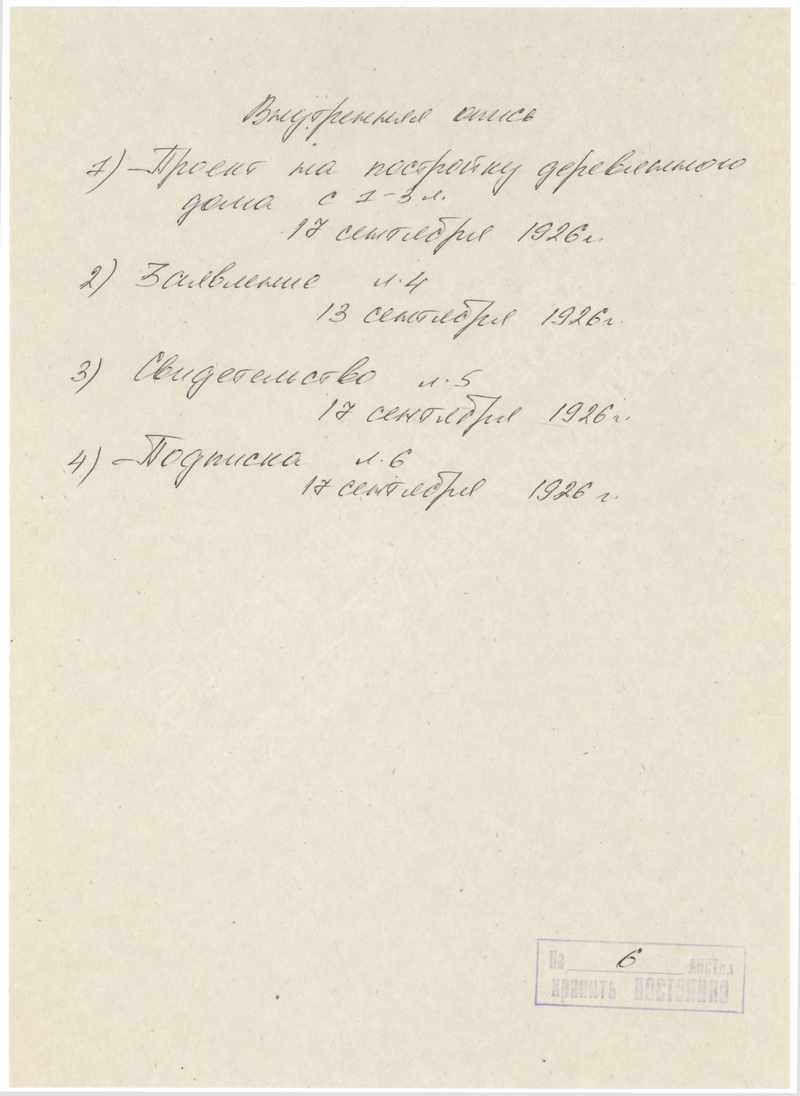 Внутренняя опись
1) Проект на постройку деревянного
дома с 1-3 л.
17 сентября 1926 г.
2) Заявление л. 4
13 сентября 1926 г.
3) Свидетельство л. 5
17 сентября 1926 г.
4) Подписка л. 6
17 сентября 1926 г.
На 6 листах
хранить постоянно